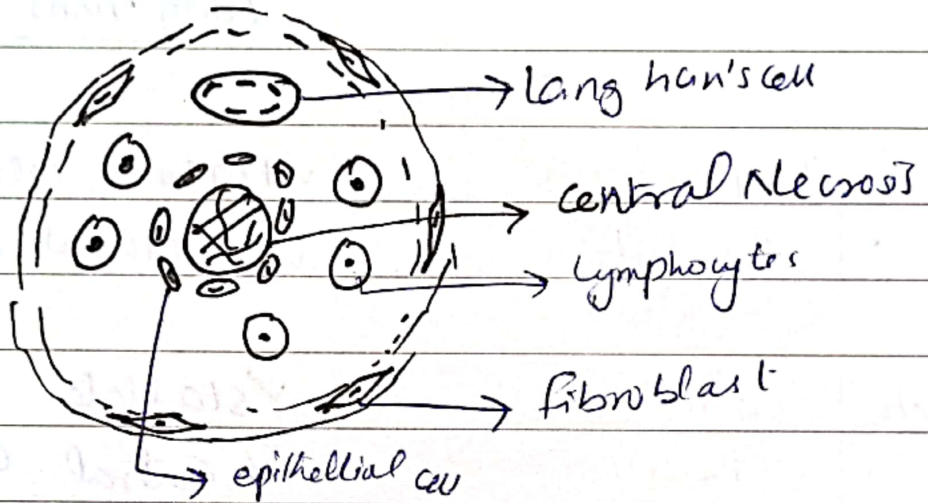 Lang han's cell
central Necrosis
Lymphocytes
fibroblast
epithellial cell